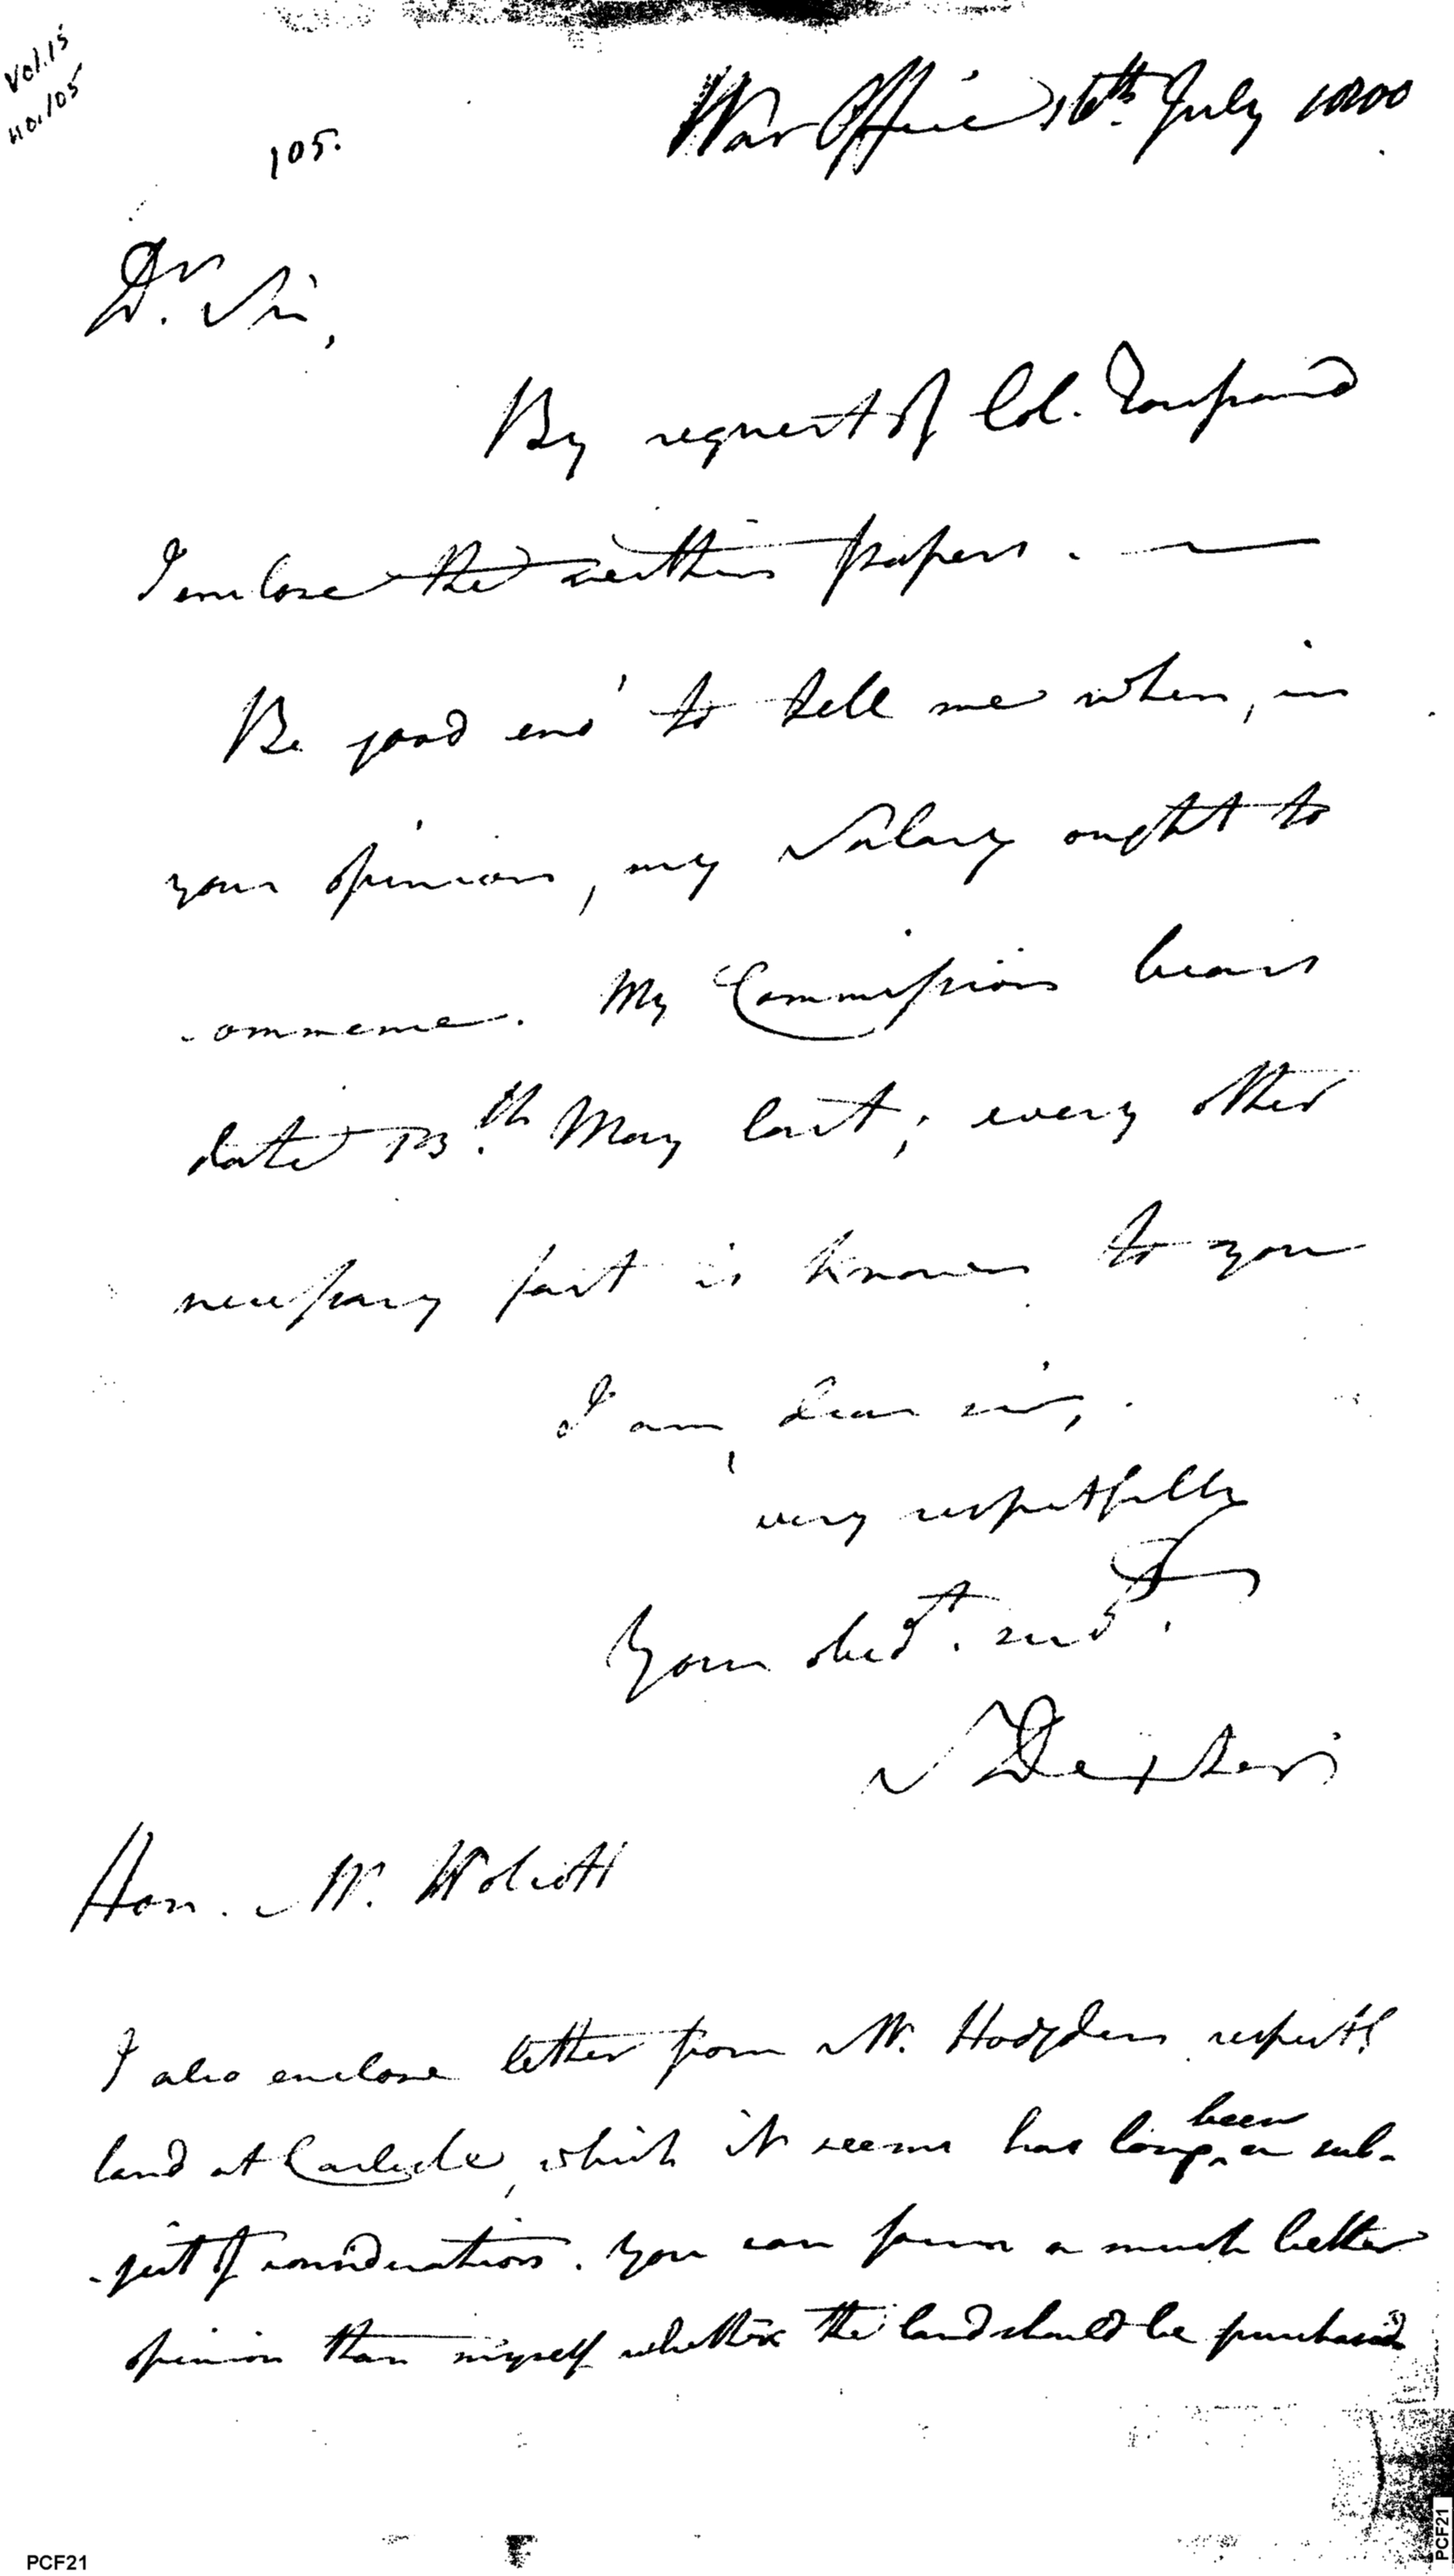 Vol. 15
no. 105
105.
War Office 16th. July 1800
Dr. Sir,
By request of Col. Toussard
I enclose the within papers. —
Be good eno' to tell me when, in
your opinion, my Salary ought to
commence. My Commission bears
date 13th. May last; every other
necessary fact is known to you
I am, dear sir,
very respectfully
Your obedt. servt.
S Dexter
Hon. Mr. Wolcott
I also enclose letter from Mr. Hodgdon respectg
land at Carlisle, which it seems has long been a sub-
-ject of consideration. You can form a much better
opinion than myself whether the land should be purchased
PCF21
PCF21